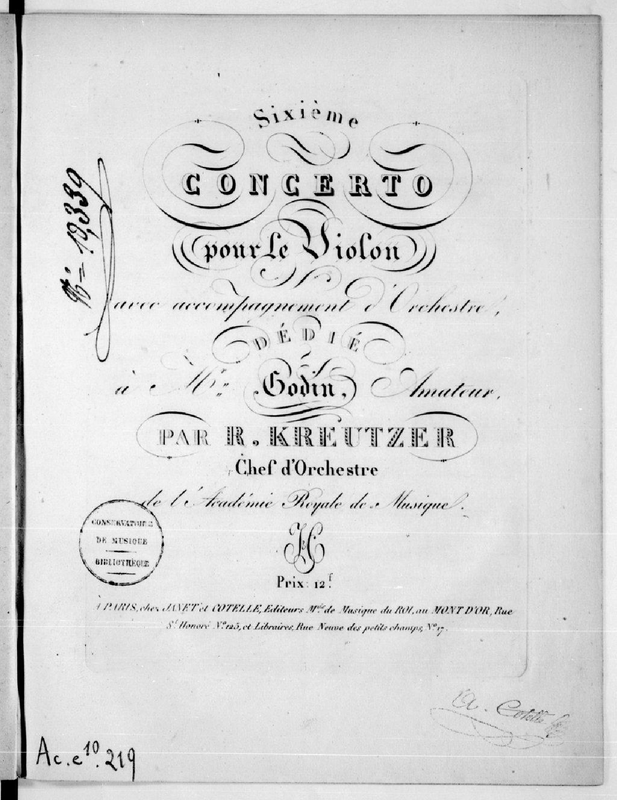 Sixième
CONCERTO
pour Le Violon
avec accompagnement d'Orchestre,
DÉDIÉ
à Mr. Godin, Amateur,
PAR R. KREUTZER
Chef d'Orchestre
de l'Académie Royale de Musique.
Prix: 12f
À PARIS, chez JANET et COTELLE, Editeurs Mds de Musique du ROI, au MONT D'OR, Rue
St Honoré No 125, et Libraires, Rue Neuve des petits champs, No 17.
No 12,339
CONSERVATOIRE
DE MUSIQUE
BIBLIOTHÈQUE
Cotelle
Ac.e10.219